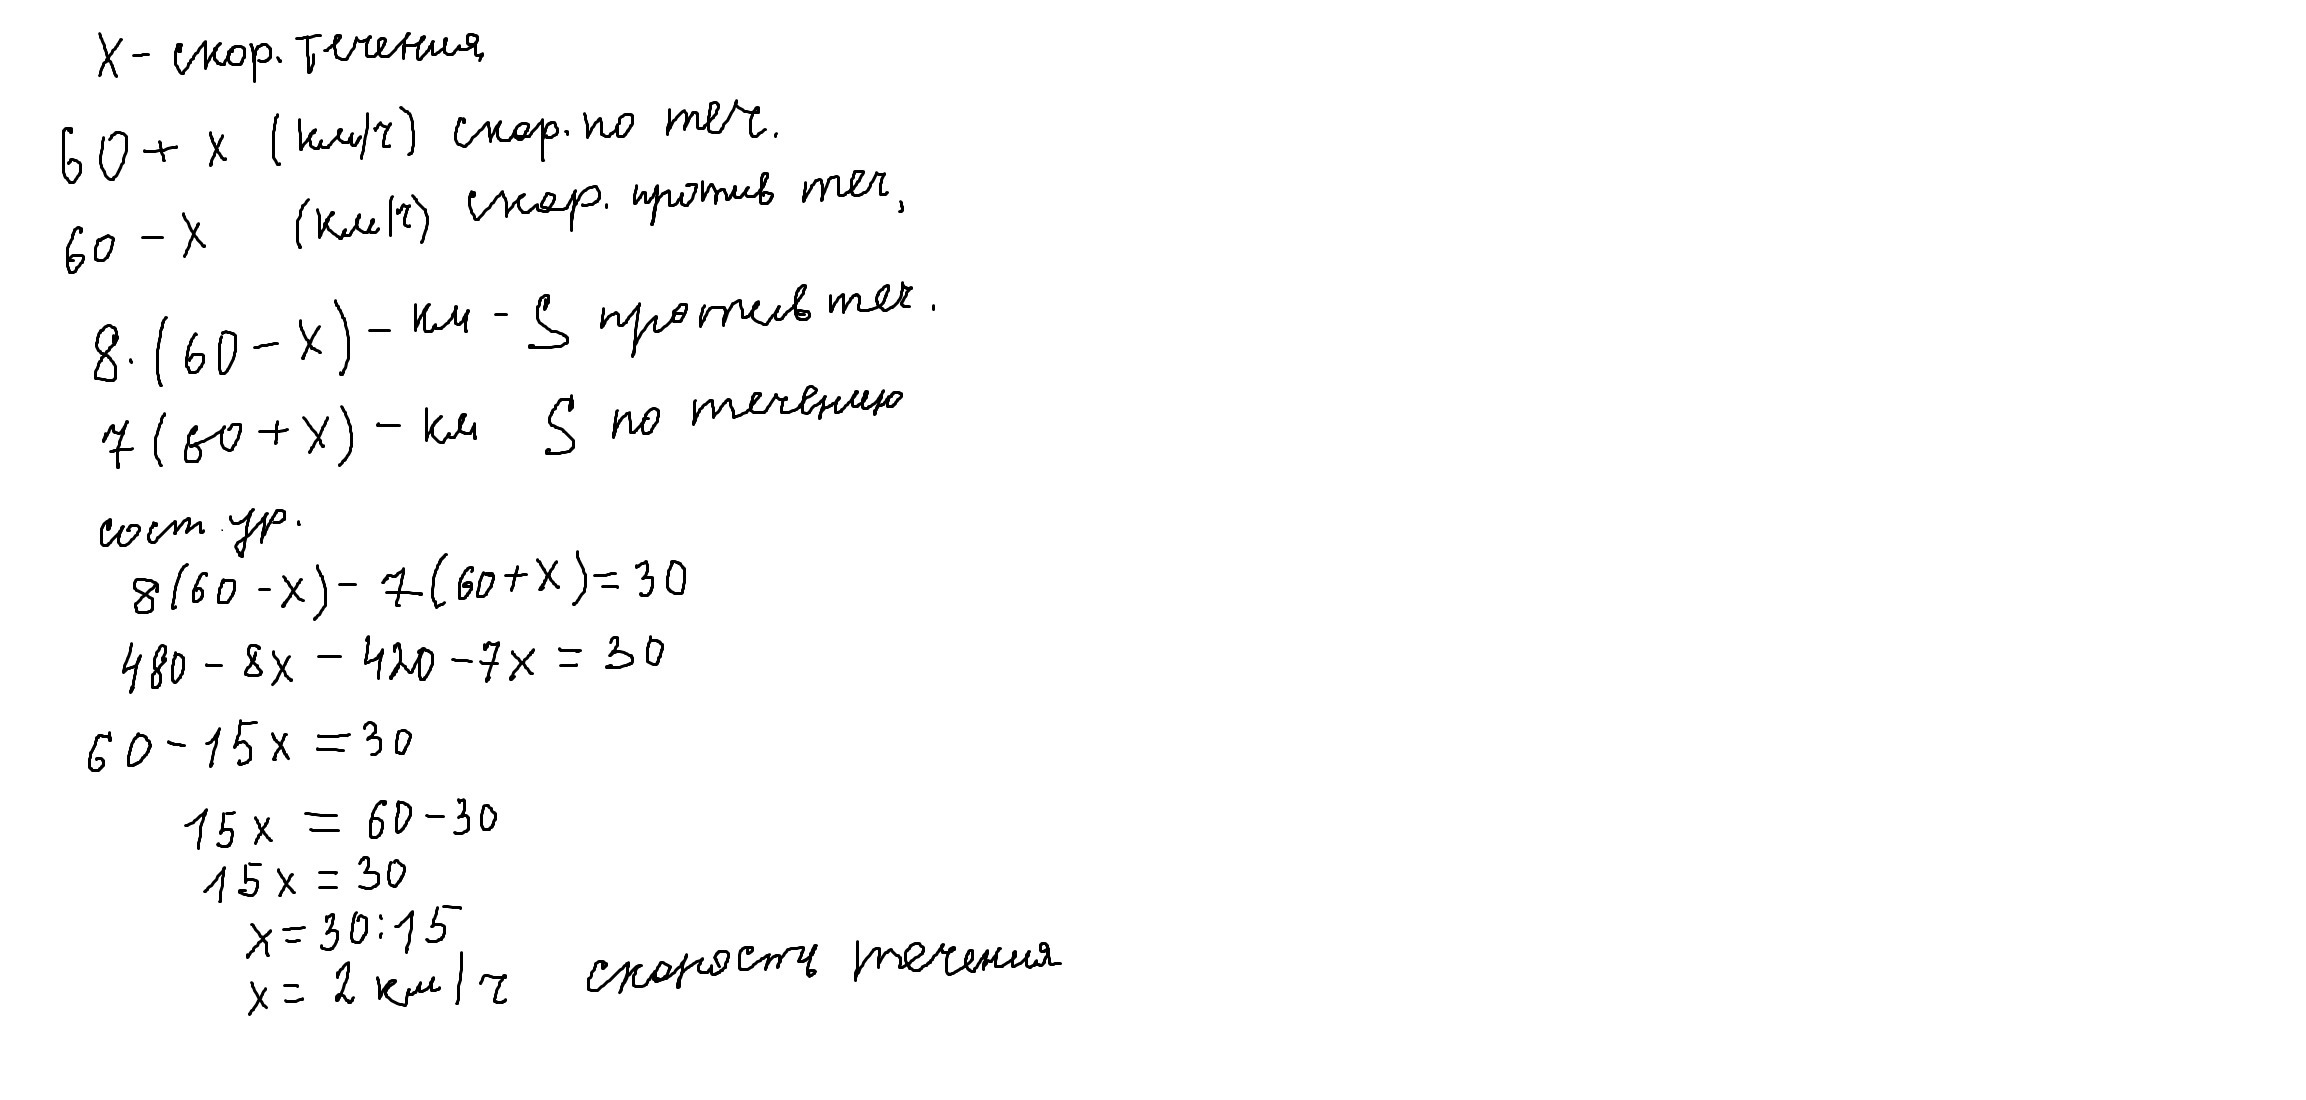 x - скор. течения
60 + x (км/ч) скор. по теч.
60 - x (км/ч) скор. против теч.
8·(60 - x) - км - S против теч.
7(60 + x) - км S по течению
сост. ур.
8(60 - x) - 7(60 + x) = 30
480 - 8x - 420 - 7x = 30
60 - 15x = 30
15x = 60 - 30
15x = 30
x = 30 : 15
x = 2 км/ч скорость течения